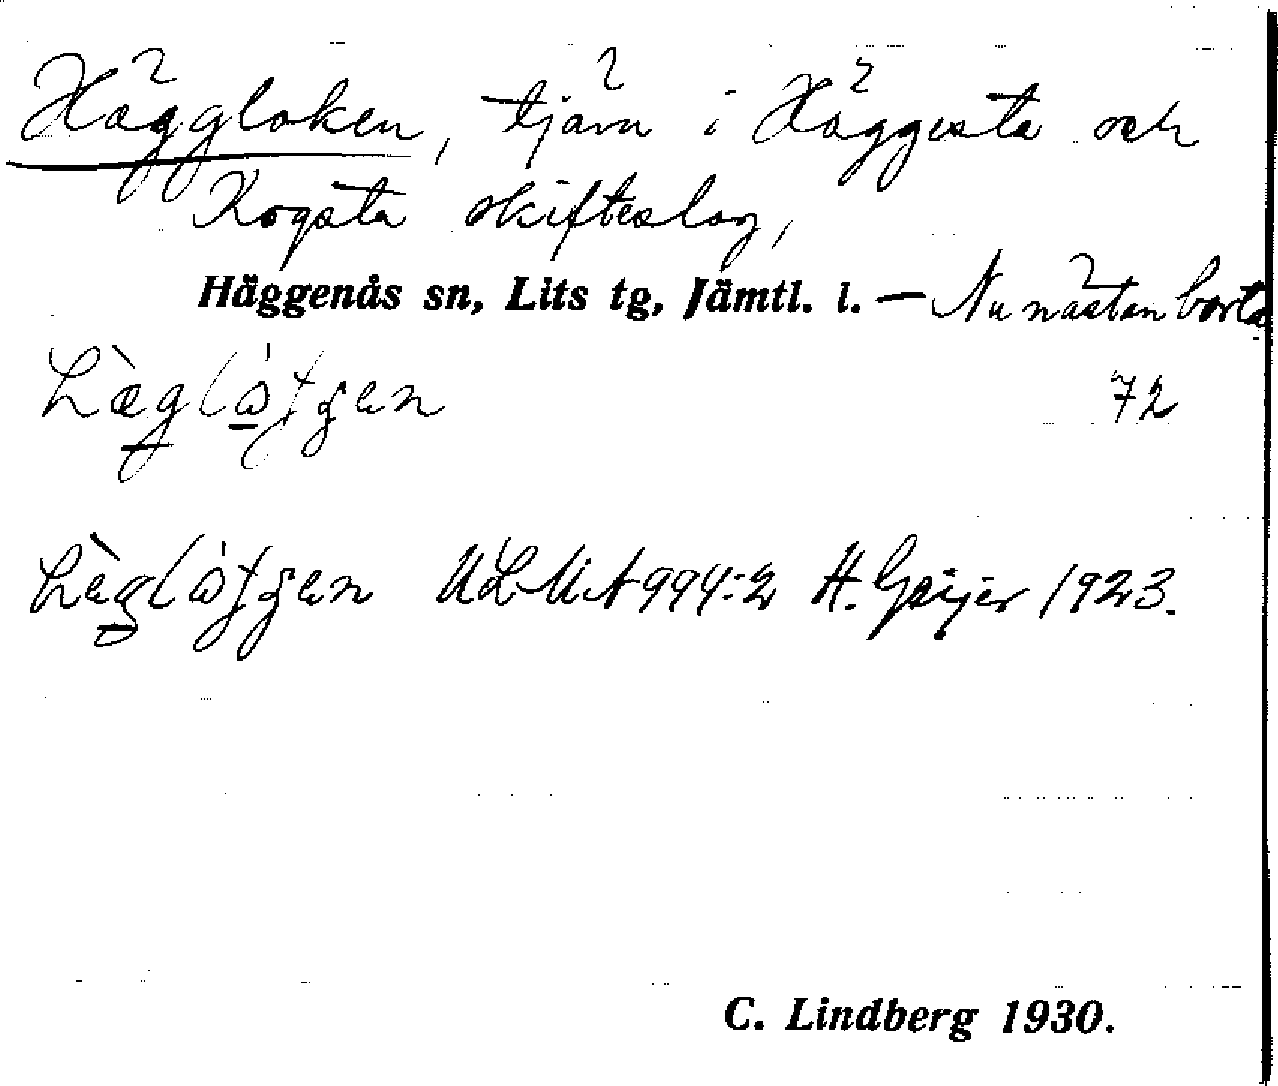 Häggloken, tjärn i Häggesta och
Kogsta skifteslag,
Häggenås sn, Lits tg, Jämtl. l. — Nu nästan borta
72
ULMA 994:2 H. Geijer 1923.
C. Lindberg 1930.